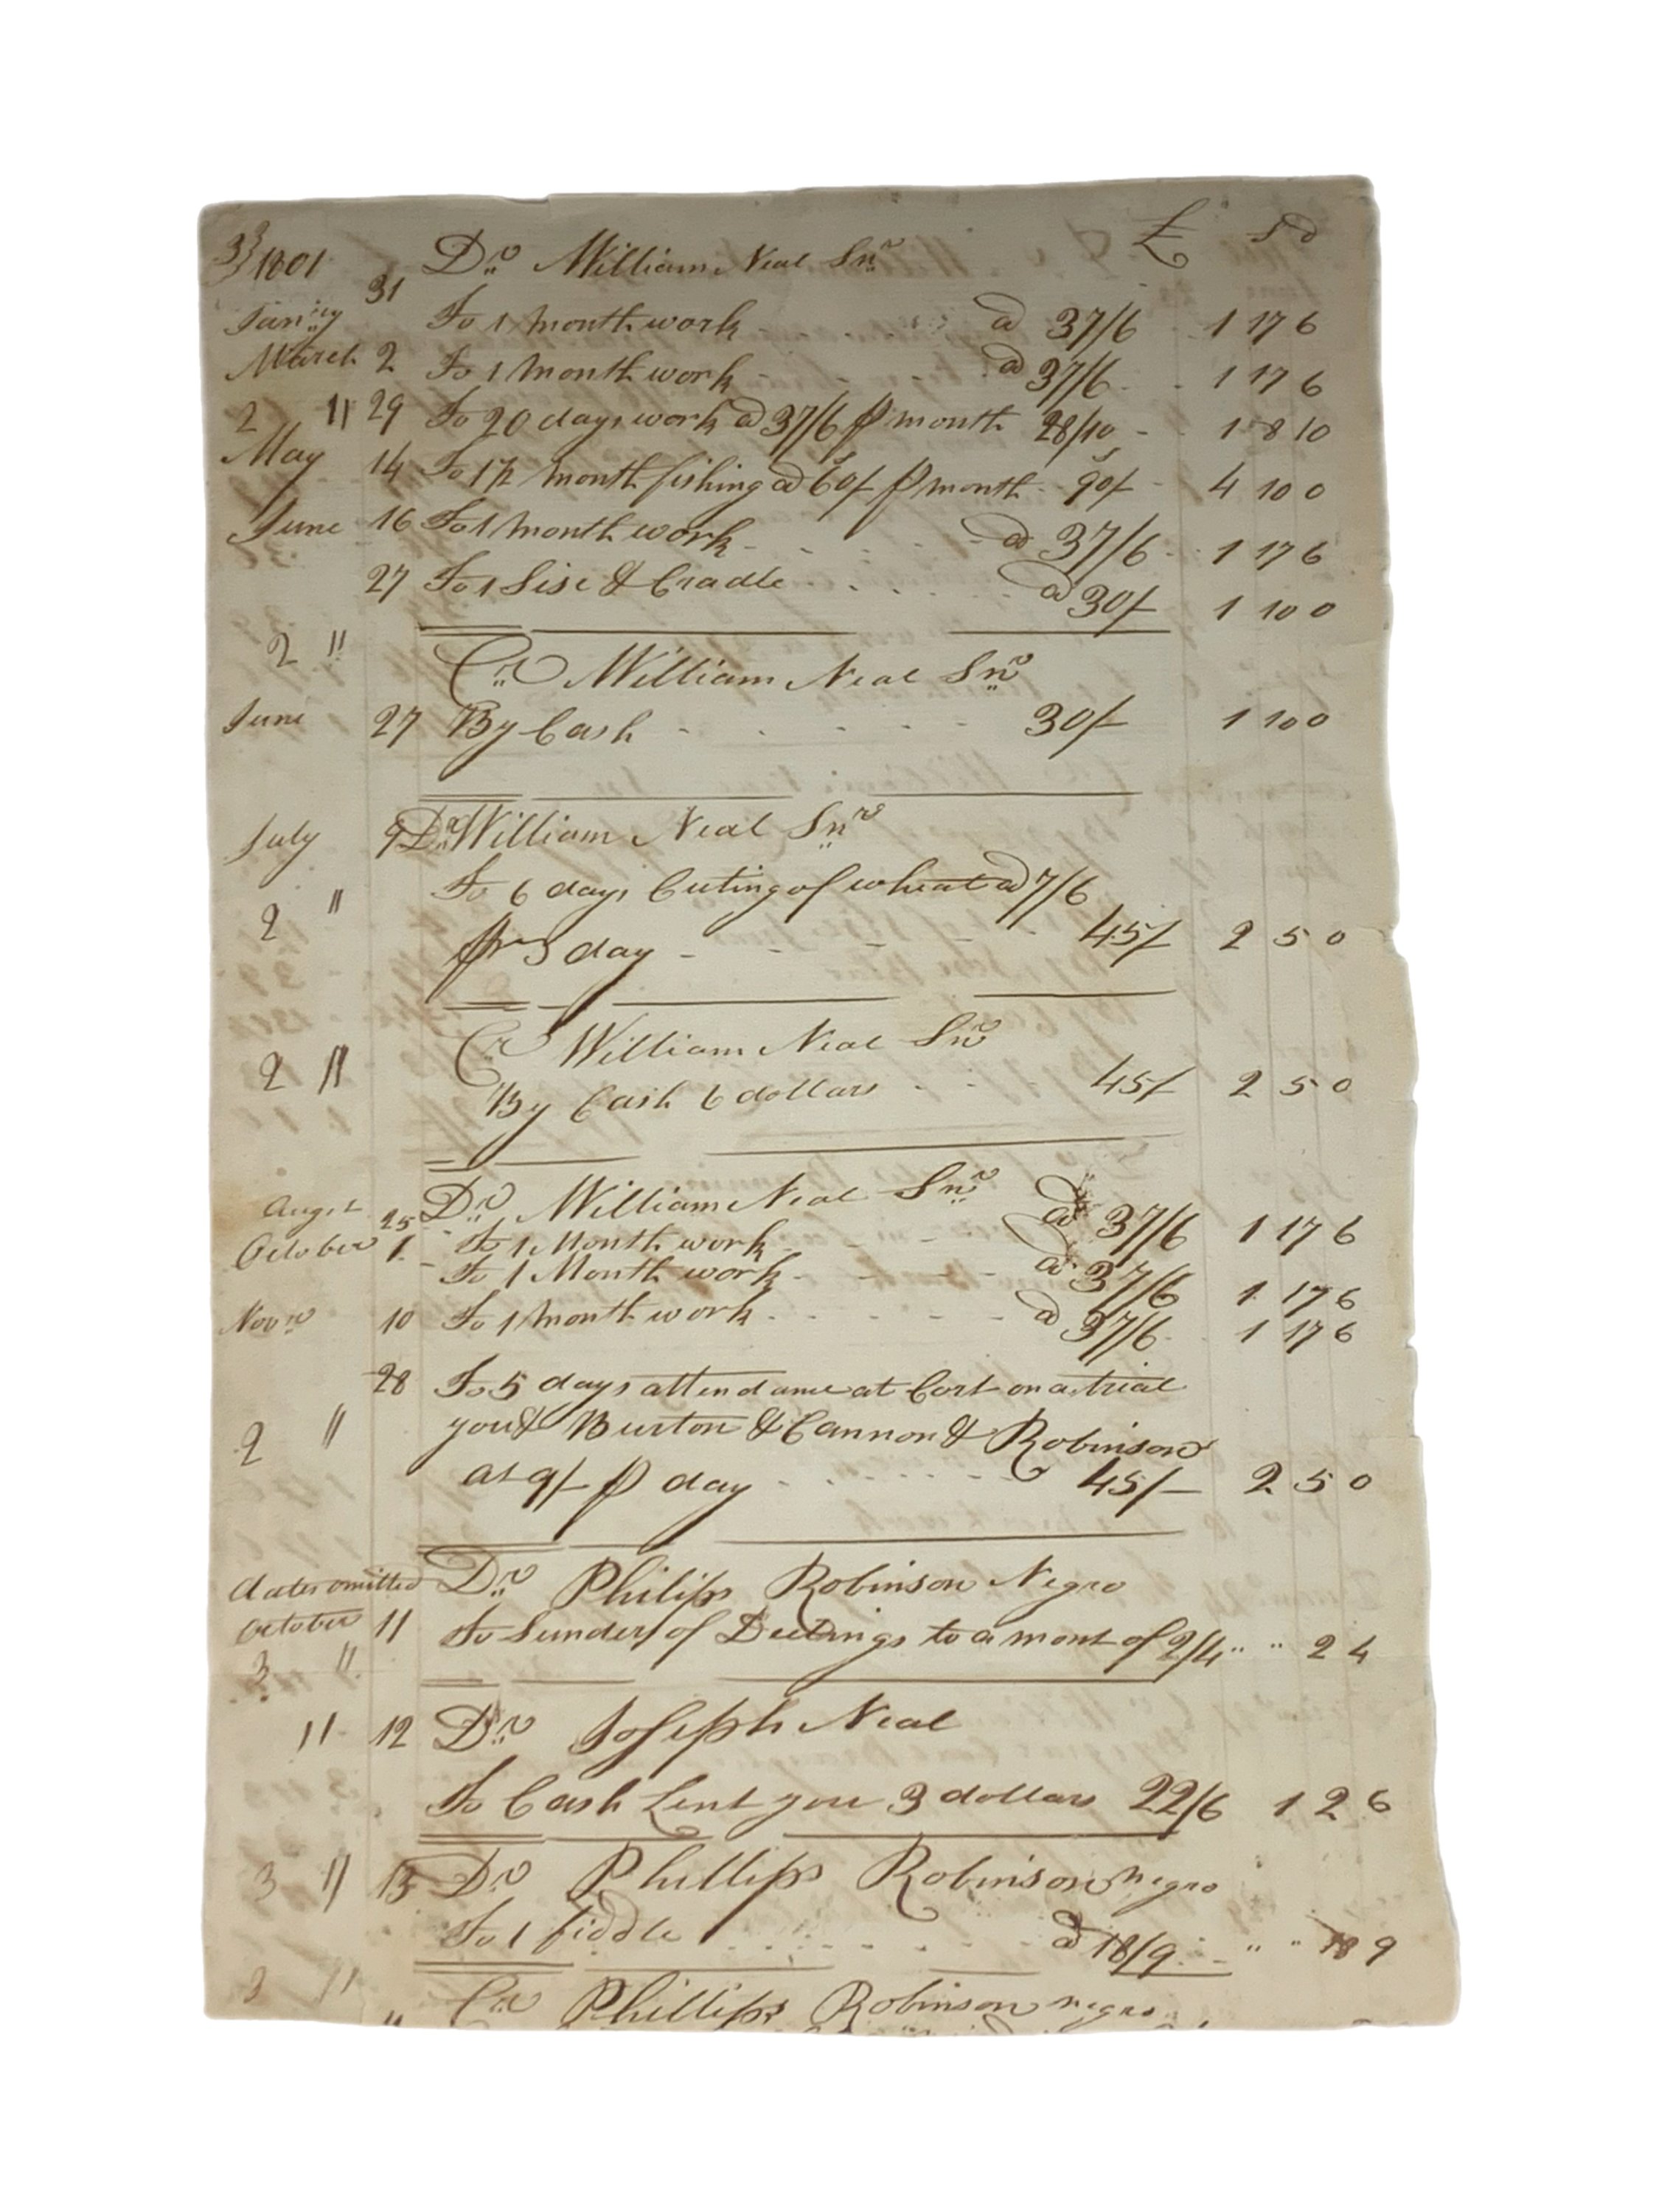 33 1801 Dr William Neal Snr £ s d
Janry 31 To 1 month work - - - - a 37/6 - 1 17 6
March 2 To 1 month work - - - - a 37/6 - - 1 17 6
2 11 29 To 20 days work a 37/6 ⅌ month 28/10 - - 1 8 10
May 14 To 1 1/2 month fishing a 60/ ⅌ month - 90/ - 4 10 0
June 16 To 1 month work - - - - a 37/6 - - 1 17 6
27 To 1 Sise & Cradle - - - - a 30/ 1 10 0
2 " Cr William Neal Snr
June 27 By Cash - - - - 30/ 1 10 0
July 9 Dr William Neal Snr
To 6 days Cuting of wheat a 7/6
2 " day - - - - 45/ 2 5 0
Cr William Neal Snr
2 " By Cash 6 dollars - - - 45/ 2 5 0
Augst 25 Dr William Neal Snr
To 1 Month work a 37/6 1 17 6
October 1 - To 1 Month work - - - a 37/6 1 17 6
Novr 10 To 1 month work - - - - - a 37/6 - 1 17 6
28 To 5 days attendance at Cort on a trial
2 " you & Burton & Cannon & Robinson
at 9/ ⅌ day - - - - - 45/ - 2 5 0
dates omitted Dr Philips Robinson Negro
October 11 To Sundery of Deelings to a mont of 2/4 " " 2 4
3 "
11 12 Dr Joseph Neal
To Cash Lent you 3 dollars 22/6 1 2 6
3 11 13 Dr Phillips Robinson negro
To 1 fiddle - - - - - a 18/9 - - " " 18 9
3 11 Cr Phillips Robinson negro